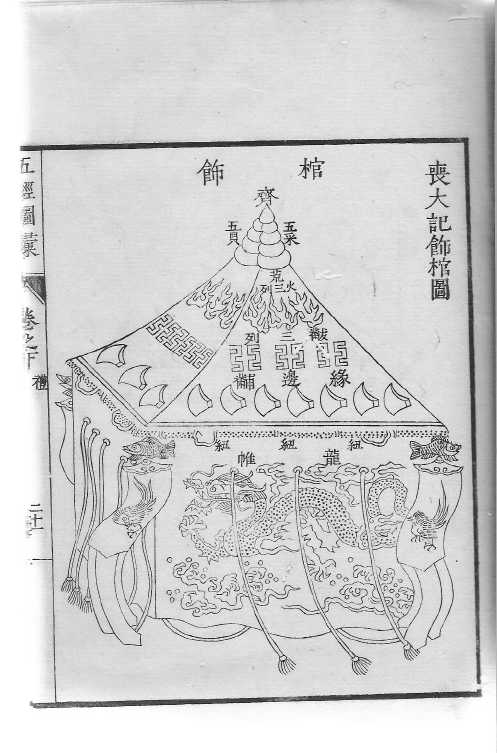 喪大記飾棺圖
棺飾
齊
五采
五貝
荒
火三列
黻三列
緣邊黼
紐 紐 紐
龍帷
五經圖彙
卷之下
禮